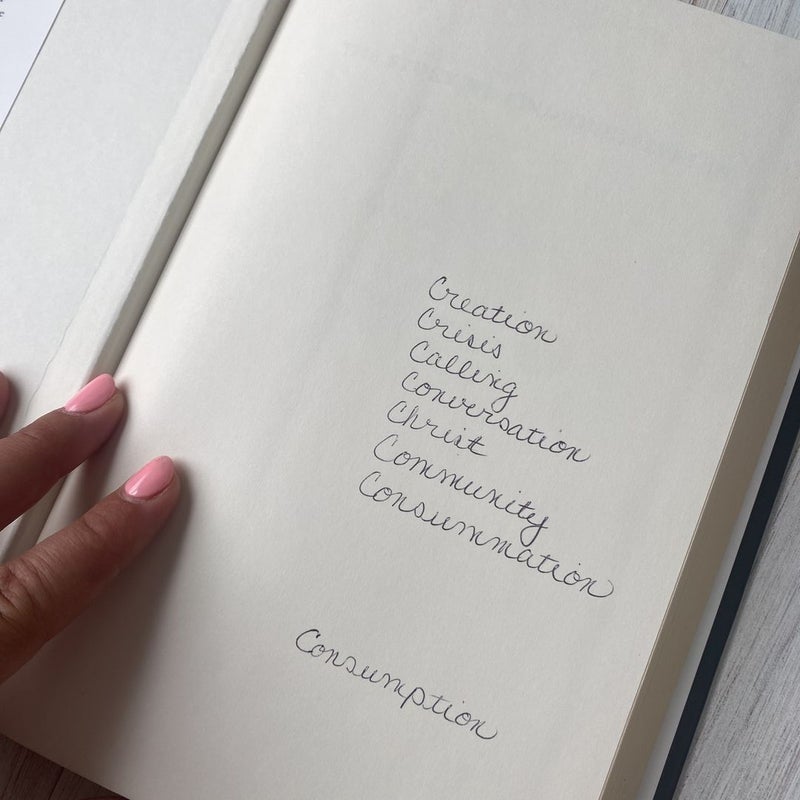 Creation
Crisis
Calling
Conversation
Christ
Community
Consummation
Consumption